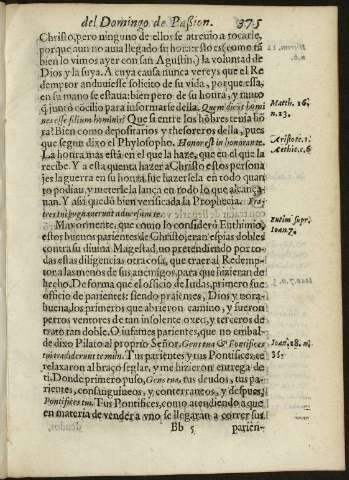 del Domingo de Passion. 375
Christo, pero ninguno de ellos se atreuio a tocarle,
porque aun no auia llegado su hora: esto es (como tã
bien lo vimos ayer con san Agustin,) la voluntad de
Dios y la suya. A cuya causa nunca vereys que el Re
demptor anduuiesse solicito de su vida, porque essa,
en su mano se estaua: bien pero de su honra, y tanto
q̃ juntò cõcilio para informarse della. Quem dicũt homi
nes esse filium hominis? Que si entre los hõbres tenia hõ
ra? Bien como depositarios y thesoreros della, pues
que segun dixo el Phylosopho. Honor est in honorante.
La honra mas està en el que la haze, que en el que la
recibe. Y a esta quenta hazer a Christo estos persona
jes la guerra en su honra, fue hazersela en todo quan
to podian, y meterle la lança en todo lo que alcança
uan. Y assi quedò bien verificada la Prophecia.
Matth. 16.
n. 23.
Aristote. 1.
Aethic. c. 6
Mayormente, que como lo considerò Euthimio,
estos buenos parientes de Christo, eran espias dobles
contra su diuina Magestad, no pretendiendo por to-
das estas diligencias otra cosa, que traer al Redemp-
tor a las menos de sus anemigos, para que hizieran de
hecho. De forma que el officio de Iudas, primero fue
officio de parientes: siendo praientes, Dios y nora-
buena, los primeros que abrieron camino, y fueron
perros ventores de tan insolente oteo, y terceros de
trato tan doble. O infames parientes, que no embal-
de dixo Pilato al proprio Señor. Gens tua & Pontifices
tui tradiderunt te mihi. Tus parientes y tus Pontifices, te
relaxaron al braço seglar, y me hizieron entrega de
ti. Donde primero puso, Gens tua, tus deudos, tus pa-
rientes, consanguineos, y conterraneos, y despues,
Pontifices tui. Tus Pontifices, como atendiendo a que
en materia de vender a vno se llegaran a correr sus
Eutim supr.
Ioan. 7.
Ioan, 18. n.
35.
Bb 5 parien-